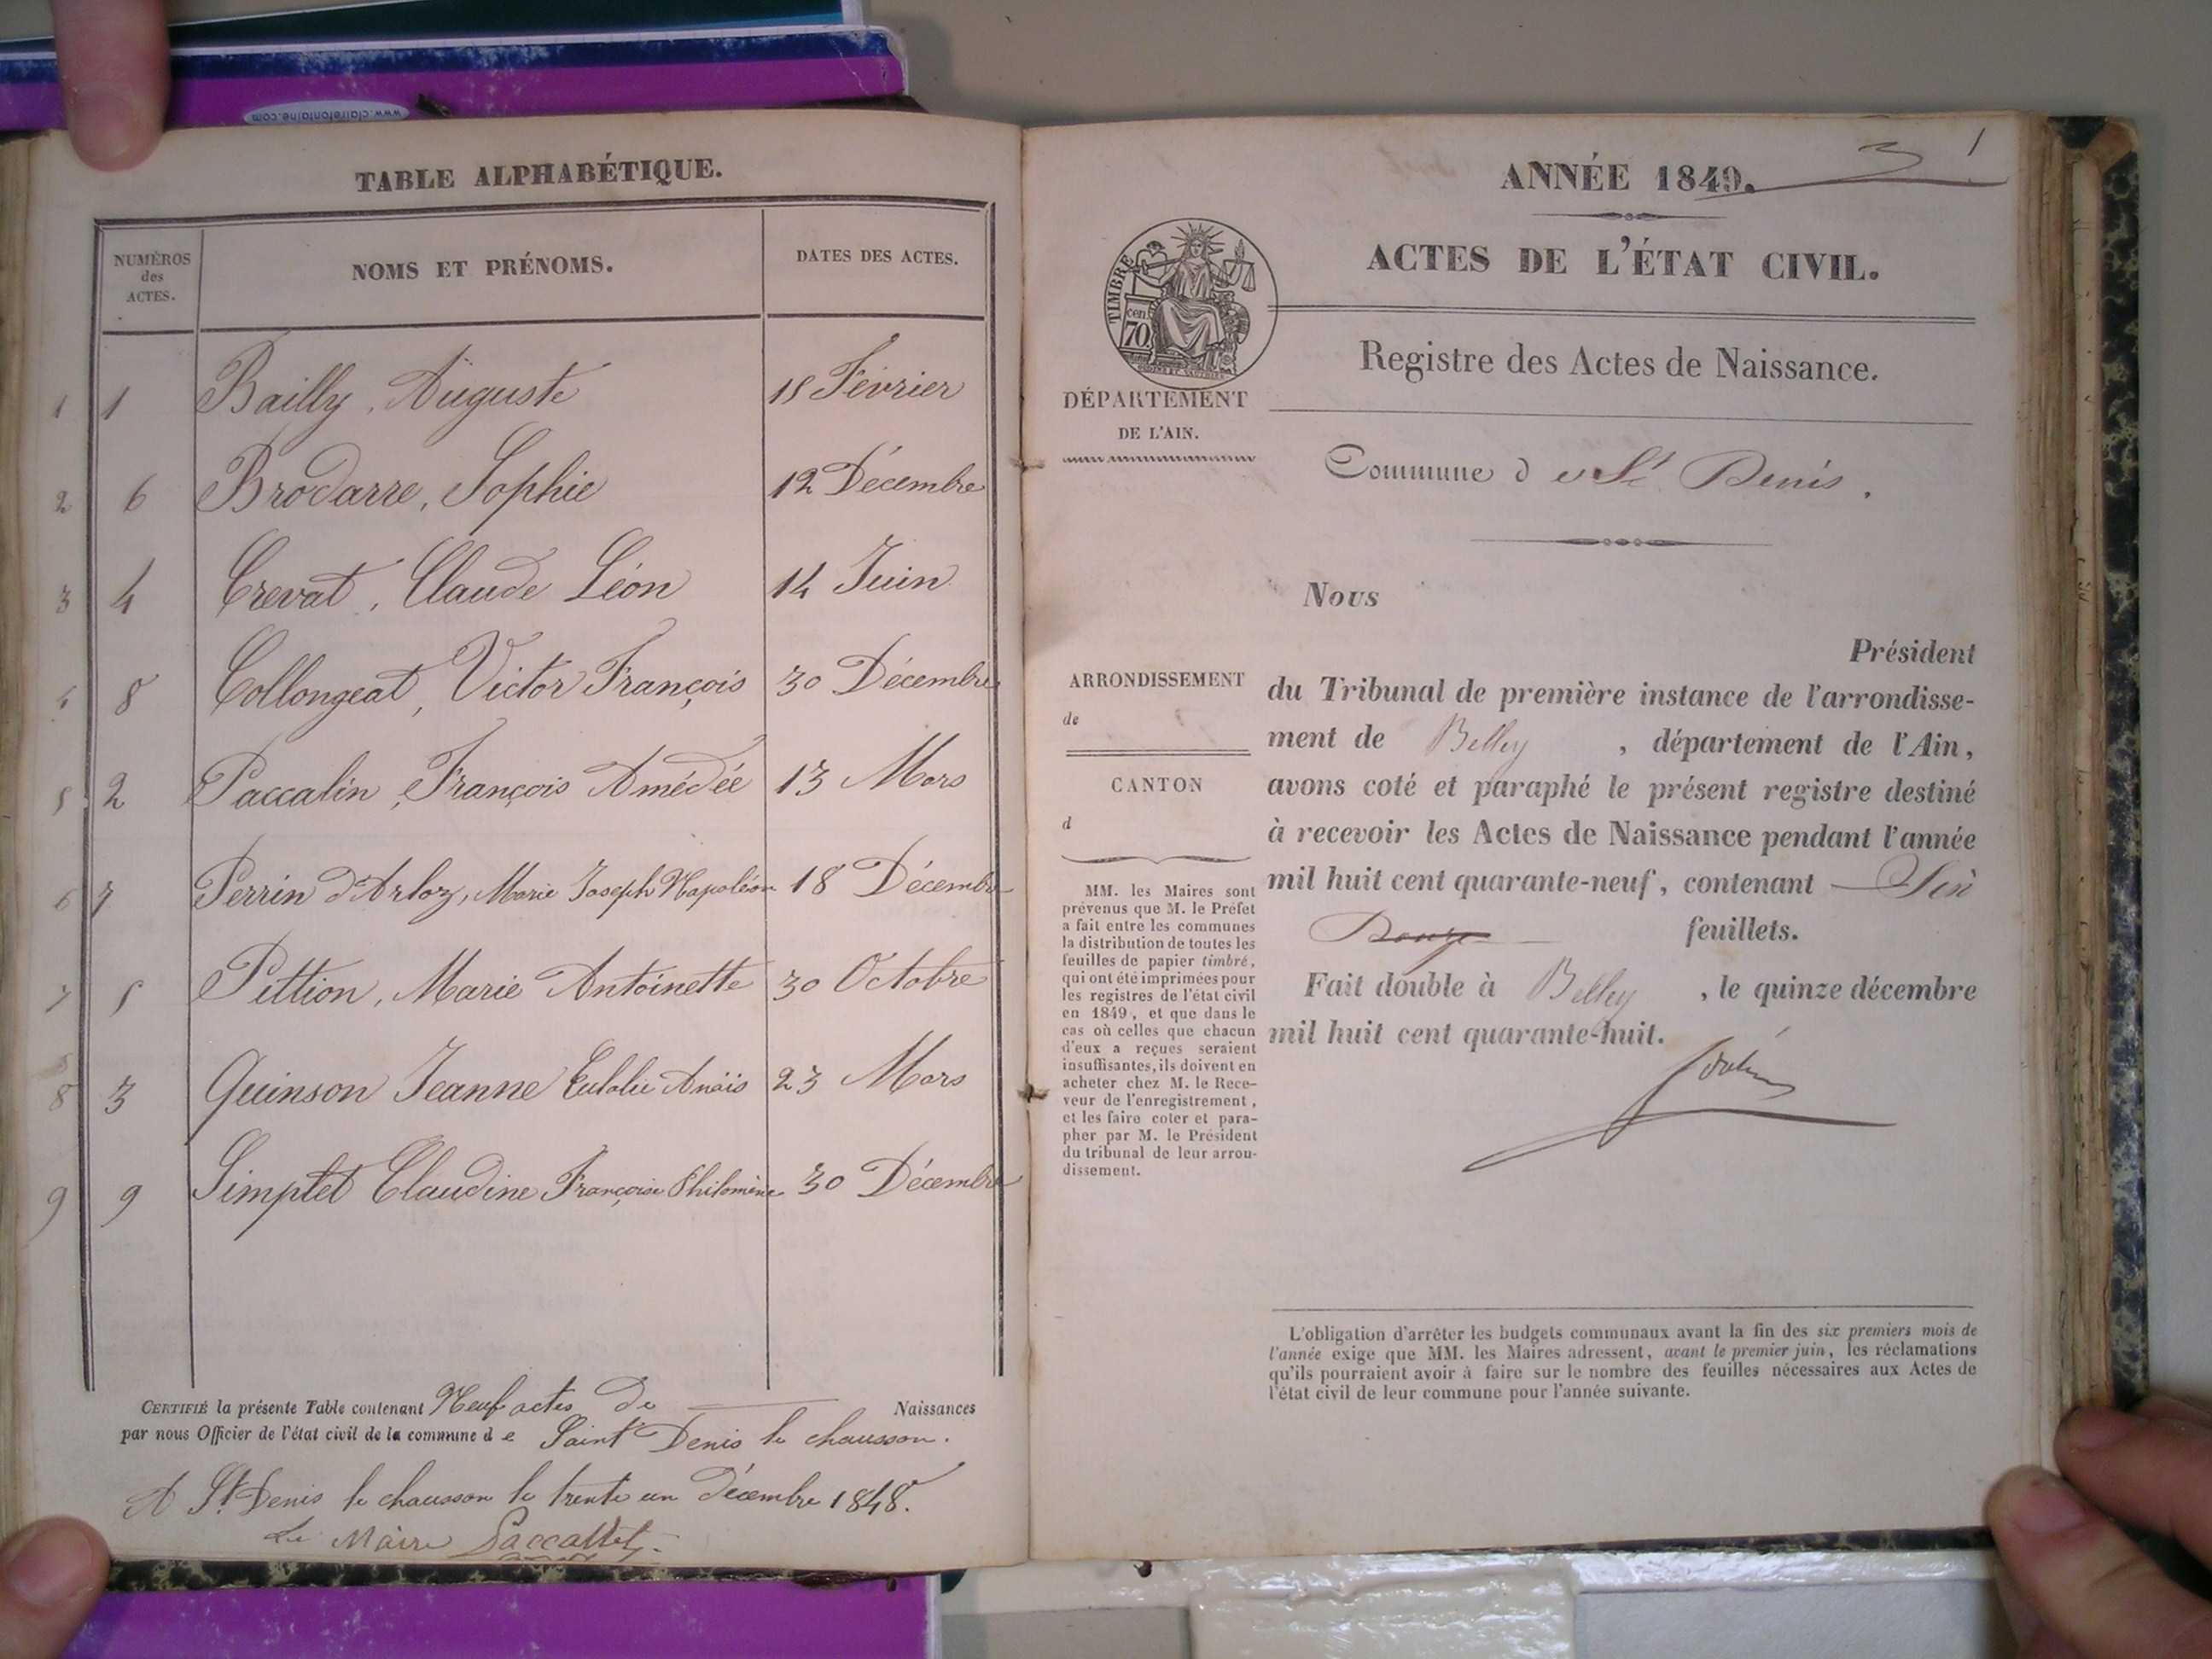 www.clairefontaine.com
TABLE ALPHABÉTIQUE.
NUMÉROS des ACTES.
NOMS ET PRÉNOMS.
DATES DES ACTES.
1 1 Bailly, Auguste 18 Février
2 6 Brodarre, Sophie 12 Décembre
3 4 Crevat, Claude Léon 14 Juin
4 8 Collongeat, Victor François 30 Décembre
5 2 Paccalin, François Amédée 13 Mars
6 7 Perrin d'Arloz, Marie Joseph Napoléon 18 Décembre
7 5 Pittion, Marie Antoinette 30 Octobre
8 3 Quinson Jeanne Eulalie Anaïs 23 Mars
9 9 Simptet Claudine Françoise Philomène 30 Décembre
CERTIFIÉ la présente Table contenant Neuf actes de Naissances
par nous Officier de l'état civil de la commune de Saint Denis le chausson.
A St Denis le chausson le trente un décembre 1848.
Le Maire
3 1
ANNÉE 1849.
TIMBRE
70 cen
ACTES DE L'ÉTAT CIVIL.
Registre des Actes de Naissance.
DÉPARTEMENT
DE L'AIN.
Commune de St Denis.
Nous
Président
ARRONDISSEMENT
de
CANTON
d
du Tribunal de première instance de l'arrondisse-
ment de Belley, département de l'Ain,
avons coté et paraphé le présent registre destiné
à recevoir les Actes de Naissance pendant l'année
mil huit cent quarante-neuf, contenant
Douze feuillets.
Fait double à Belley, le quinze décembre
mil huit cent quarante-huit.
MM. les Maires sont
prévenus que M. le Préfet
a fait entre les communes
la distribution de toutes les
feuilles de papier timbré,
qui ont été imprimées pour
les registres de l'état civil
en 1849, et que dans le
cas où celles que chacun
d'eux a reçues seraient
insuffisantes, ils doivent en
acheter chez M. le Rece-
veur de l'enregistrement,
et les faire coter et para-
pher par M. le Président
du tribunal de leur arron-
dissement.
L'obligation d'arrêter les budgets communaux avant la fin des six premiers mois de
l'année exige que MM. les Maires adressent, avant le premier juin, les réclamations
qu'ils pourraient avoir à faire sur le nombre des feuilles nécessaires aux Actes de
l'état civil de leur commune pour l'année suivante.